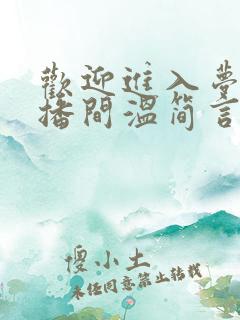 歡迎進入夢
播間溫简言
傻小土
未任同意禁止转载